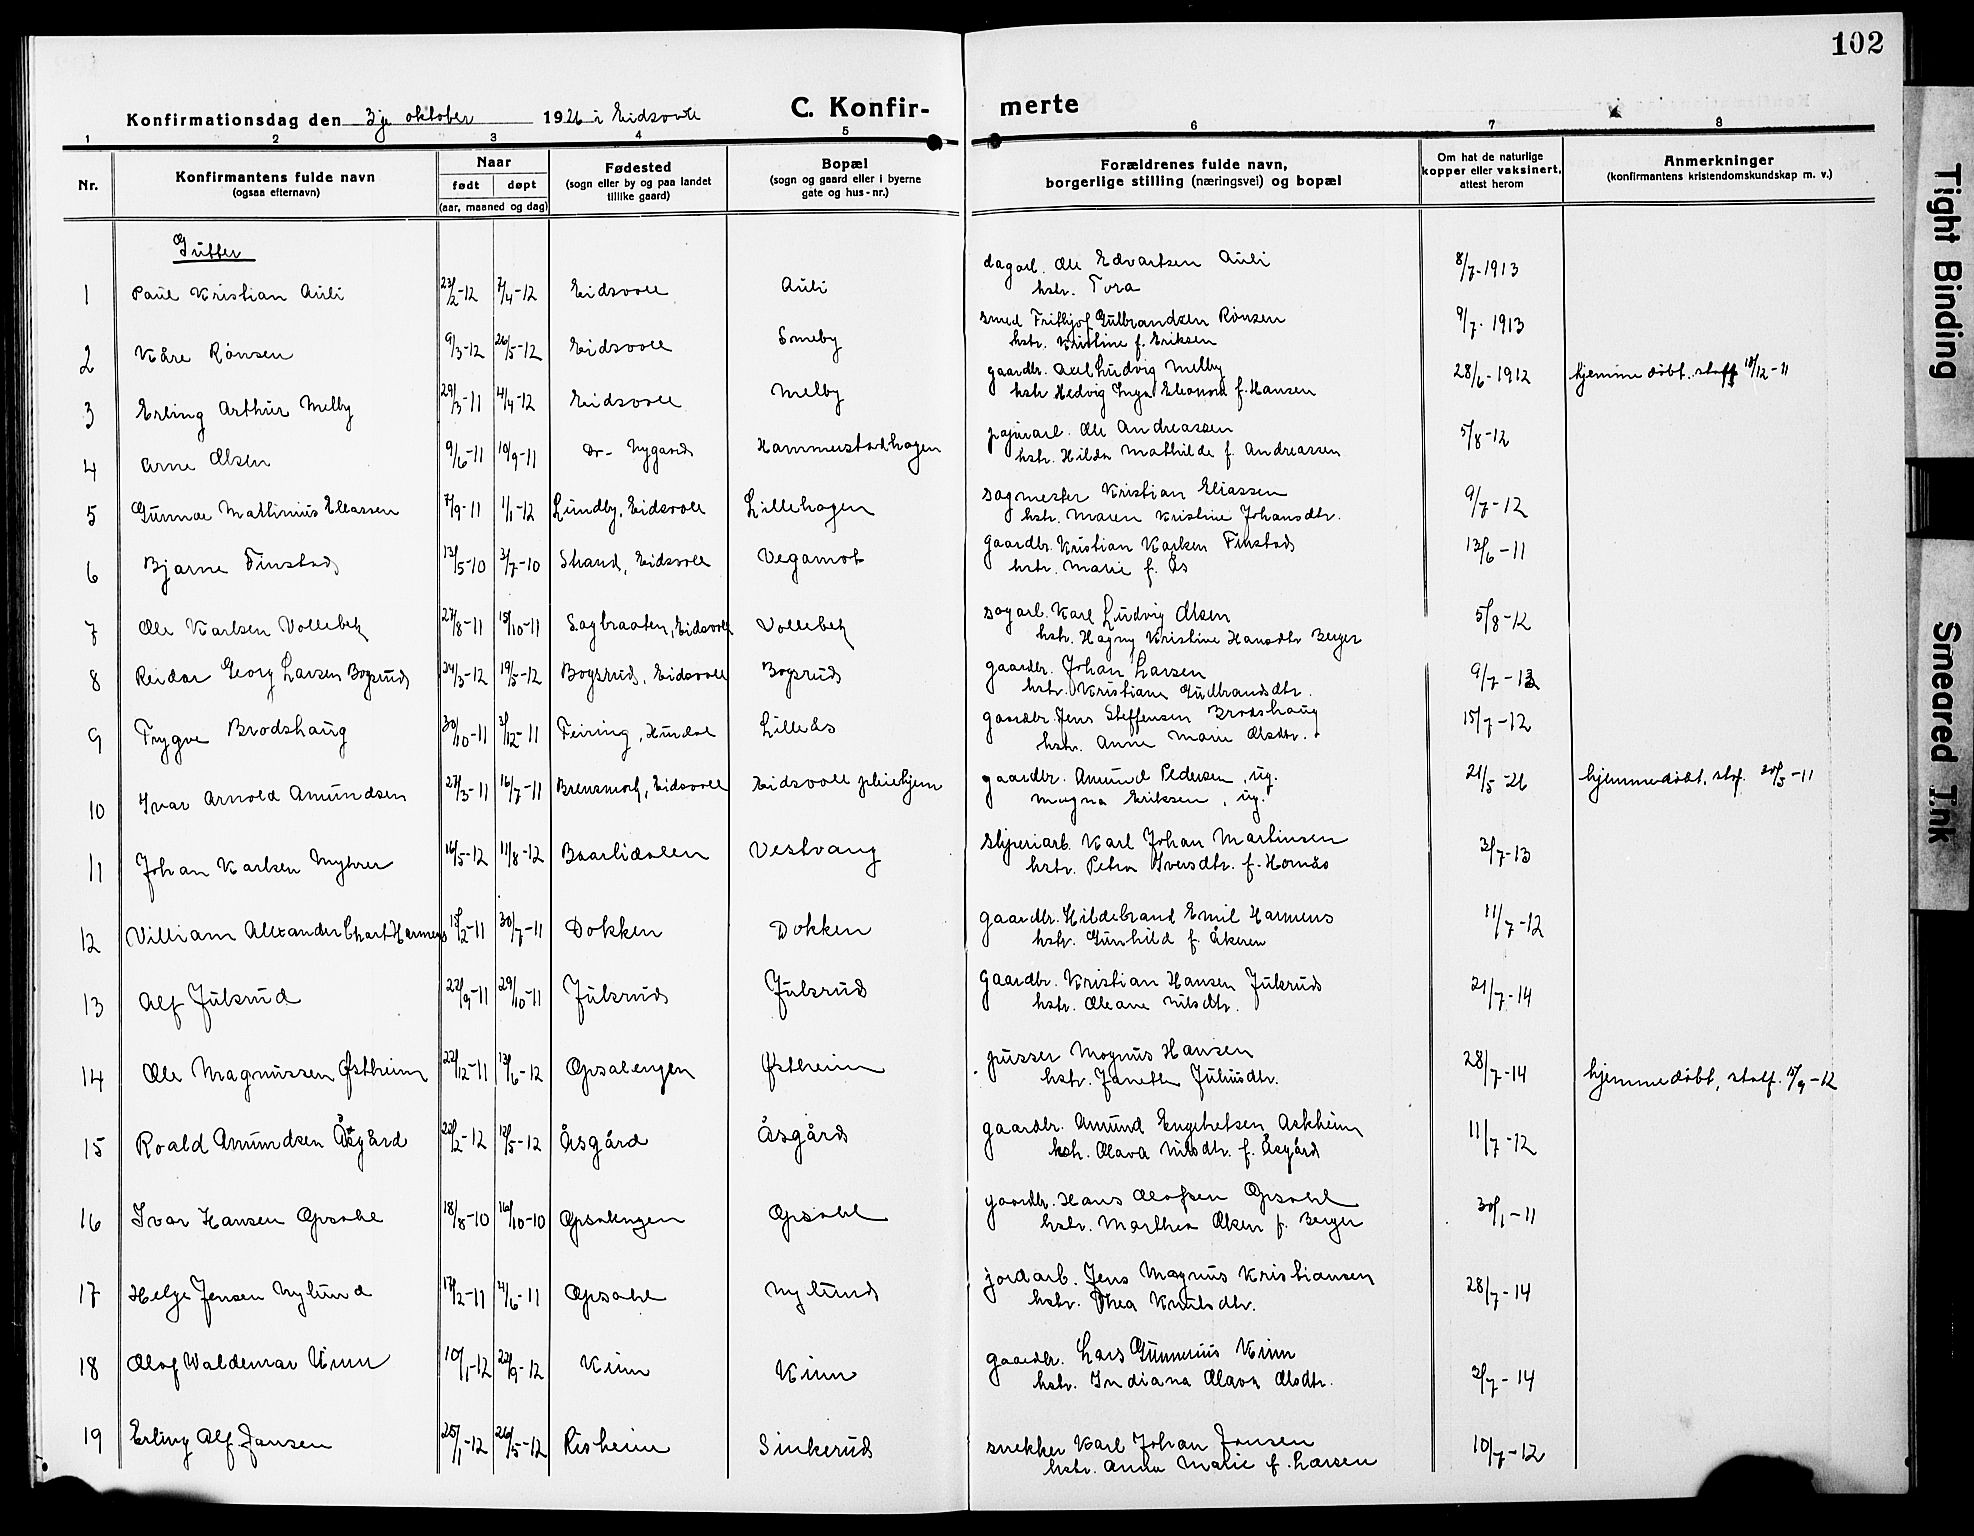 102
Konfirmationsdag den 3je oktober 1926 i Eidsvoll
C. Konfir-merte
1 2 3 4 5 6 7 8
Nr.
Konfirmantens fulde navn
(ogsaa efternavn)
Naar
født døpt
(aar, maaned og dag)
Fødested
(sogn eller by og paa landet
tillike gaard)
Bopæl
(sogn og gaard eller i byerne
gate og hus-nr.)
Forældrenes fulde navn,
borgerlige stilling (næringsvei) og bopæl
Om hat de naturlige
kopper eller vaksinert,
attest herom
Anmerkninger
(konfirmantens kristendomskundskap m. v.)
Gutter
1 Paul Kristian Auli 23/2-12 7/4-12 Eidsvoll Auli dagarb. Ole Edvartsen Auli 8/7-1913
hstr. Tora
2 Kåre Rønsen 9/3-12 26/5-12 Eidsvoll Smeby smed Frithjof Gulbrandsen Rønsen 9/7-1913
hstr. Kristine f. Eriksen
3 Erling Arthur Melby 29/3-11 4/4-12 Eidsvoll Melby gaardbr. Axel Ludvig Melby 28/6-1912 hjemmedøbt, staff 18/12-11
hstr Hedvig Inga Eleonora f. Hansen
4 Arne Olsen 9/6-11 10/9-11 Do- Nygaard Hammerstadhagen papirarb. Ole Andreassen 5/8-12
hstr. Hilda Mathilde f. Andreassen
5 Gunnar Mathinius Eliassen 7/9-11 1/1-12 Lundby, Eidsvoll Lillehagen sagmester Kristian Eliassen 9/7-12
hstr. Maren Kristine Johansdtr.
6 Bjarne Finstad 13/5-10 3/7-10 Strand, Eidsvoll Vegamot gaardbr. Kristian Karlsen Finstad 13/6-11
hstr. Marie f. Ås
7 Ole Karlsen Vollebek 27/8-11 15/10-11 Sagbraaten, Eidsvoll Vollebek sagarb. Karl Ludvig Olsen 5/8-12
hstr. Hagny Kristine Hansdtr Berger
8 Reidar Georg Larsen Bogsrud 24/3-12 19/5-12 Bogsrud, Eidsvoll Bogsrud gaardbr. Johan Larsen 9/7-13
hstr. Kristiane Gudbrandsdtr.
9 Trygve Brodshaug 30/10-11 3/12-11 Feiring, Hurdal Lilleås gaardbr. Jens Steffensen Brodshaug 15/7-12
hstr. Anne Marie Olsdtr.
10 Ivar Arnold Amundsen 27/3-11 16/7-11 Brensmork, Eidsvoll Eidsvoll pleiehjem gaardbr. Amund Pedersen, ug. 21/5-26 hjemmedøbt, staf. 30/3-11
Magna Eriksen, ug.
11 Johan Karlsen Myhrer 16/5-12 11/8-12 Baarlidalen Vestvang sliperiarb. Karl Johan Martinsen 3/7-13
hstr. Petra Iversdtr. f. Hornås
12 Villiam Alexander Charl Harmens 18/2-11 30/7-11 Dokken Dokken gaardbr. Hildebrand Emil Harmens 11/7-12
hstr. Gunhild f. Åkeren
13 Alf Julsrud 22/9-11 29/10-11 Julsrud Julsrud gaardbr. Kristian Hansen Julsrud 21/7-14
hstr. Oleane Nilsdtr.
14 Ole Magnussen Østheim 22/12-11 13/6-12 Opsalengen Østheim pusser Magnus Hansen 28/7-14 hjemmedøbt, staf. 15/9-12
hstr. Janethe Juliusdtr.
15 Roald Amundsen Åsgård 22/2-12 12/5-12 Åsgård Åsgård gaardbr. Amund Engebretsen Askheim 11/7-12
hstr. Olava Nilsdtr. f. Åsgård
16 Ivar Hansen Opsahl 18/8-10 16/10-10 Opsalengen Opsahl gaardbr. Hans Olafsen Opsahl 30/1-11
hstr. Marthea Olsen f. Berger
17 Helge Jensen Nylund 17/2-11 4/6-11 Opsahl Nylund jordarb. Jens Magnus Kristiansen 28/7-14
hstr. Thea Knutsdtr.
18 Olaf Waldemar Kinn 10/1-12 22/9-12 Kinn Kinn gaardbr. Lars Gunnerius Kinn 3/7-14
hstr. Indiana Olava Olsdtr.
19 Erling Alf Jansen 25/1-12 26/5-12 Risheim Sinkerud snekker Karl Johan Jansen 10/7-12
hstr. Anna Marie f. Larsen
Tight Binding
Smeared Ink